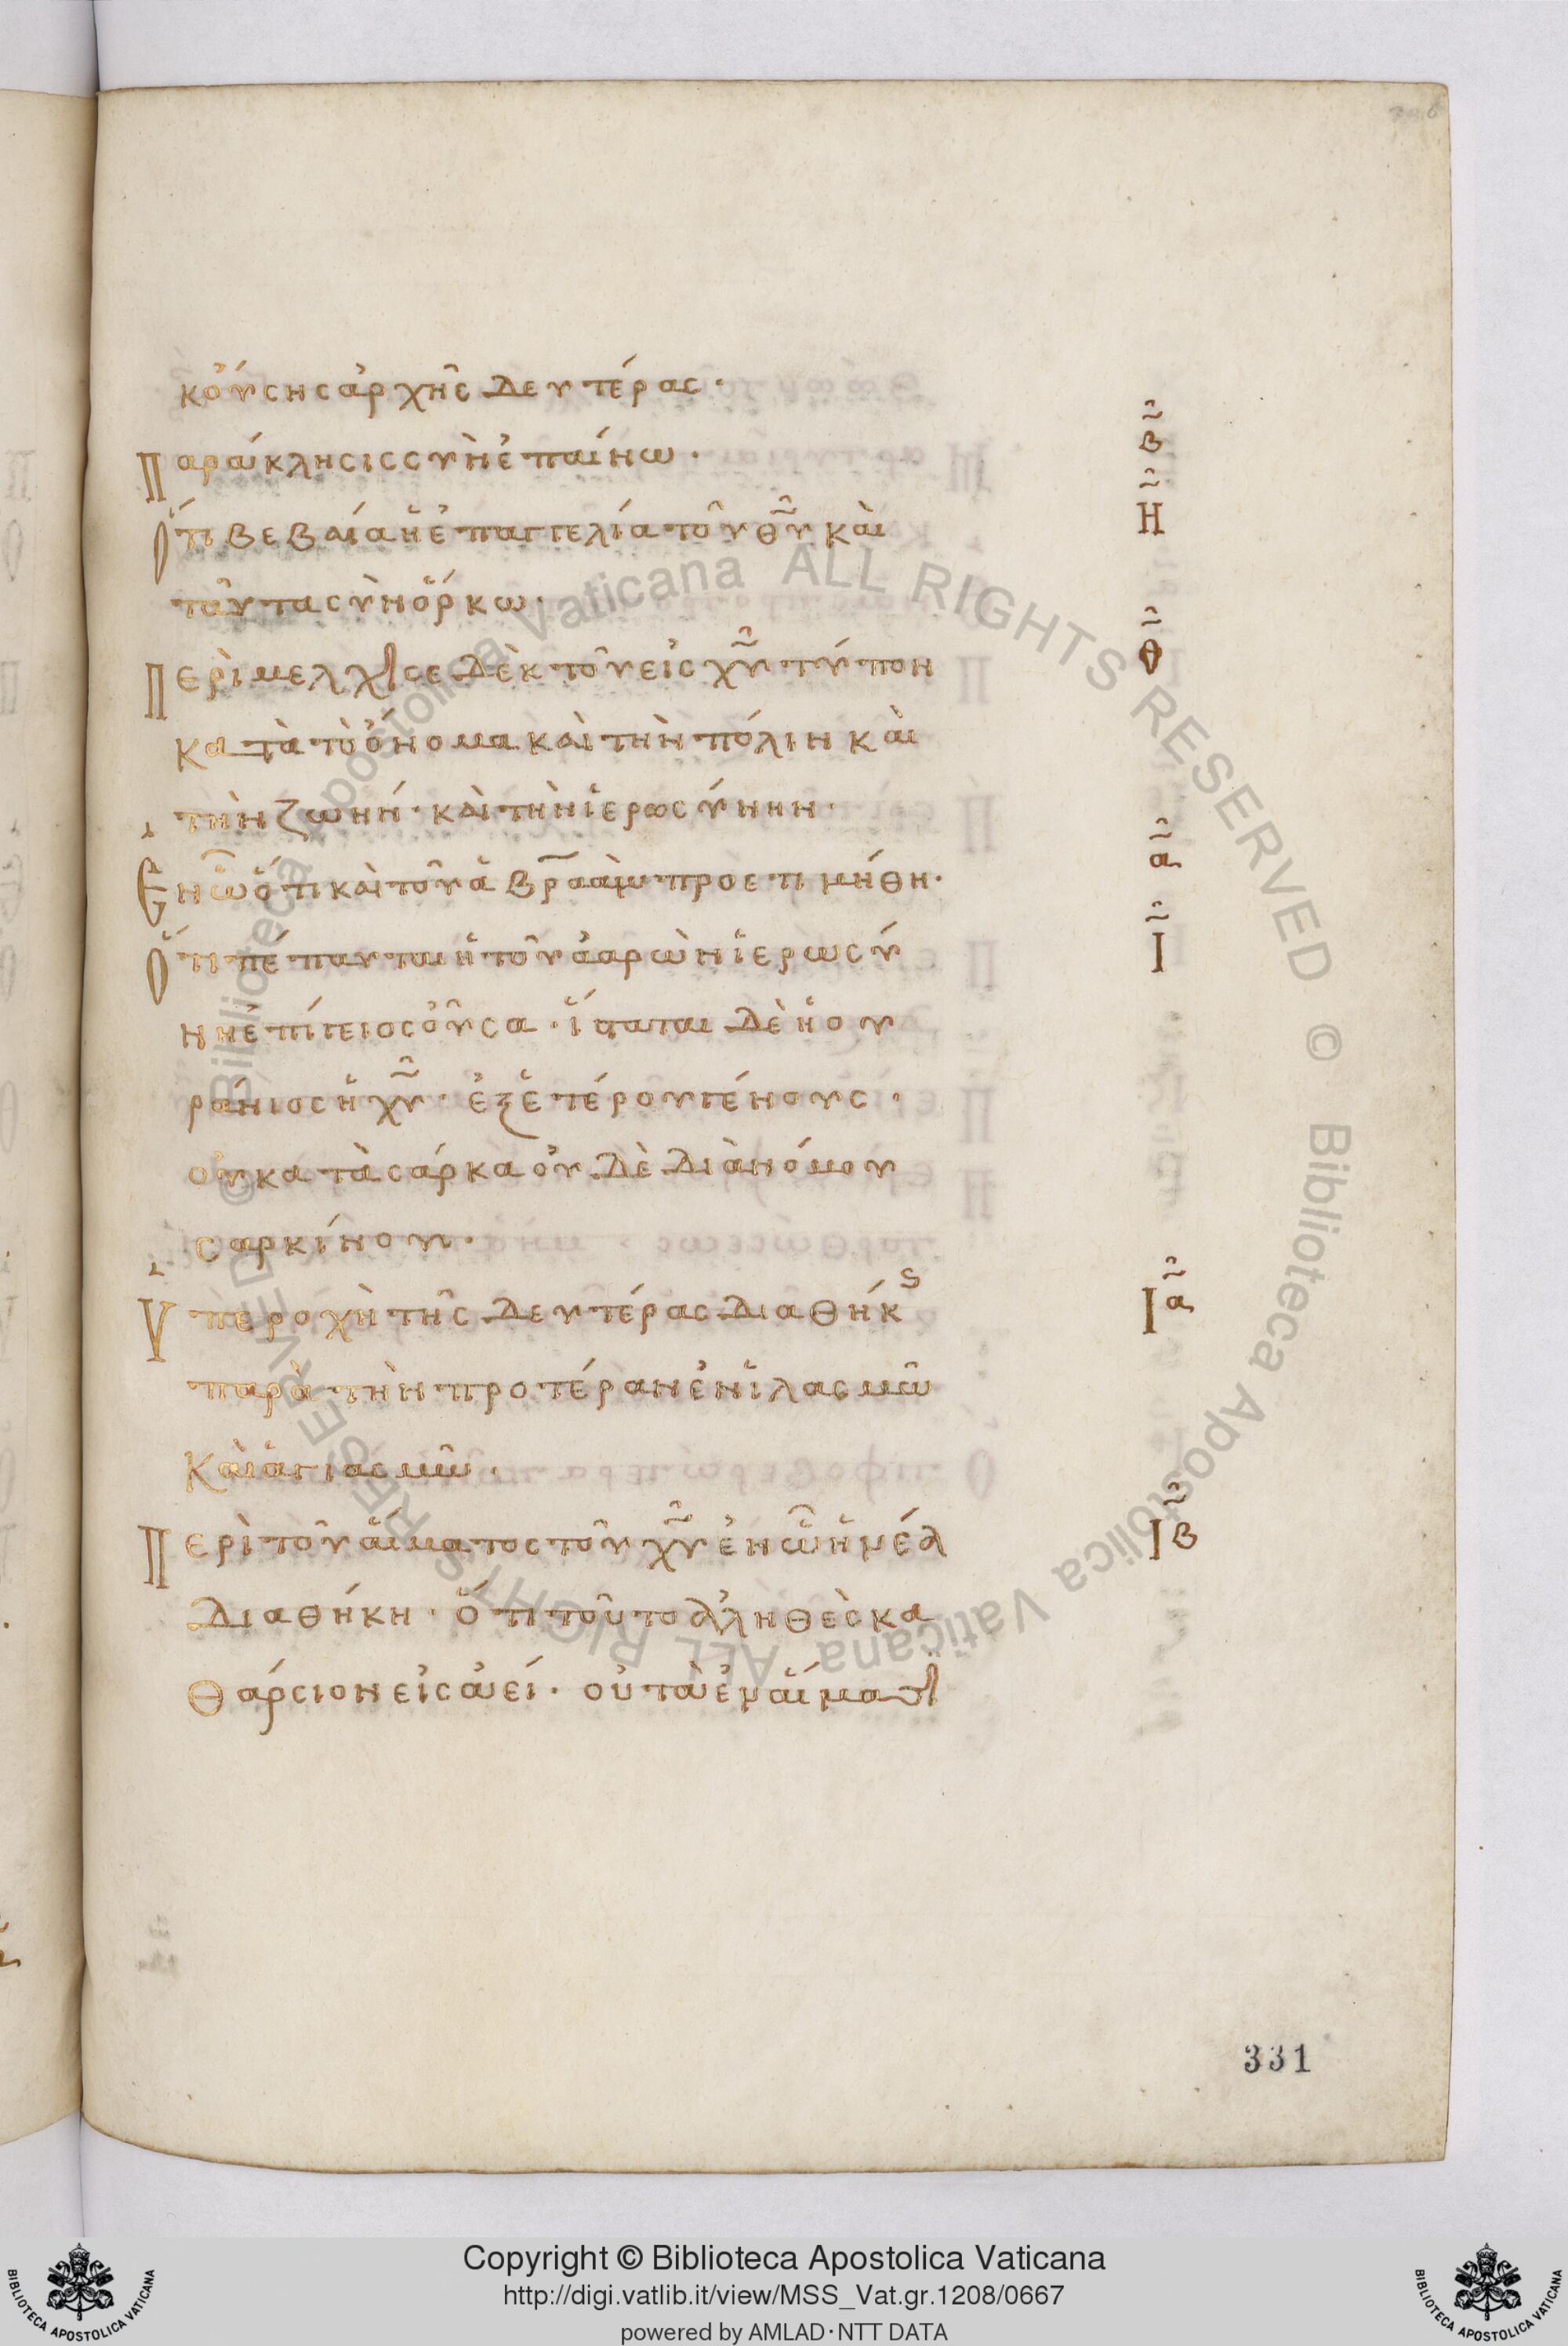 κούσης ἀρχῆς δευτέρας·
Παράκλησις σὺν ἐπαίνω· β
Ὅτι βεβαία ἡ ἐπαγγελία τοῦ θ̅υ̅ καὶ Η
ταῦτα σὺν ὅρκω·
Περὶ μελχισεδὲκ τοῦ εἰς χ̅ν̅ τύπον Θ
κατὰ τὸ ὄνομα καὶ τὴν πόλιν καὶ
τὴν ζωήν· καὶ τὴν ἱερωσύνην·
Ἐν ὧ ὅτι καὶ τοῦ ἀβραὰμ προετιμήθη· α
Ὅτι πέπαυται ἡ τοῦ ἀαρὼν ἱερωσύ Ι
νη ἐπίγειος οὖσα· ἵσταται δὲ ἡ ου
ράνιος ἡ χ̅υ̅· ἐξ ἑτέρου γένους·
οὐ κατὰ σάρκα οὐδὲ διὰ νόμου
σαρκίνου·
Ὑπεροχὴ τῆς δευτέρας διαθήκς Ια
παρὰ τὴν προτέραν ἐν ἱλασμῶ
Καὶ ἁγιασμῶ·
Περὶ τοῦ αἵματος τοῦ χ̅υ̅ ἐν ὧ ἡ νέα Ιβ
διαθήκη· ὅτι τοῦτο ἀληθὲς κα
θάρσιον εἰς ἀεί· οὐ τὰ ἐν αἵματι
331
Copyright © Biblioteca Apostolica Vaticana
http://digi.vatlib.it/view/MSS_Vat.gr.1208/0667
powered by AMLAD·NTT DATA
BIBLIOTECA APOSTOLICA VATICANA
BIBLIOTECA APOSTOLICA VATICANA
© Biblioteca Apostolica Vaticana ALL RIGHTS RESERVED © Biblioteca Apostolica Vaticana ALL RIGHTS RESERVED